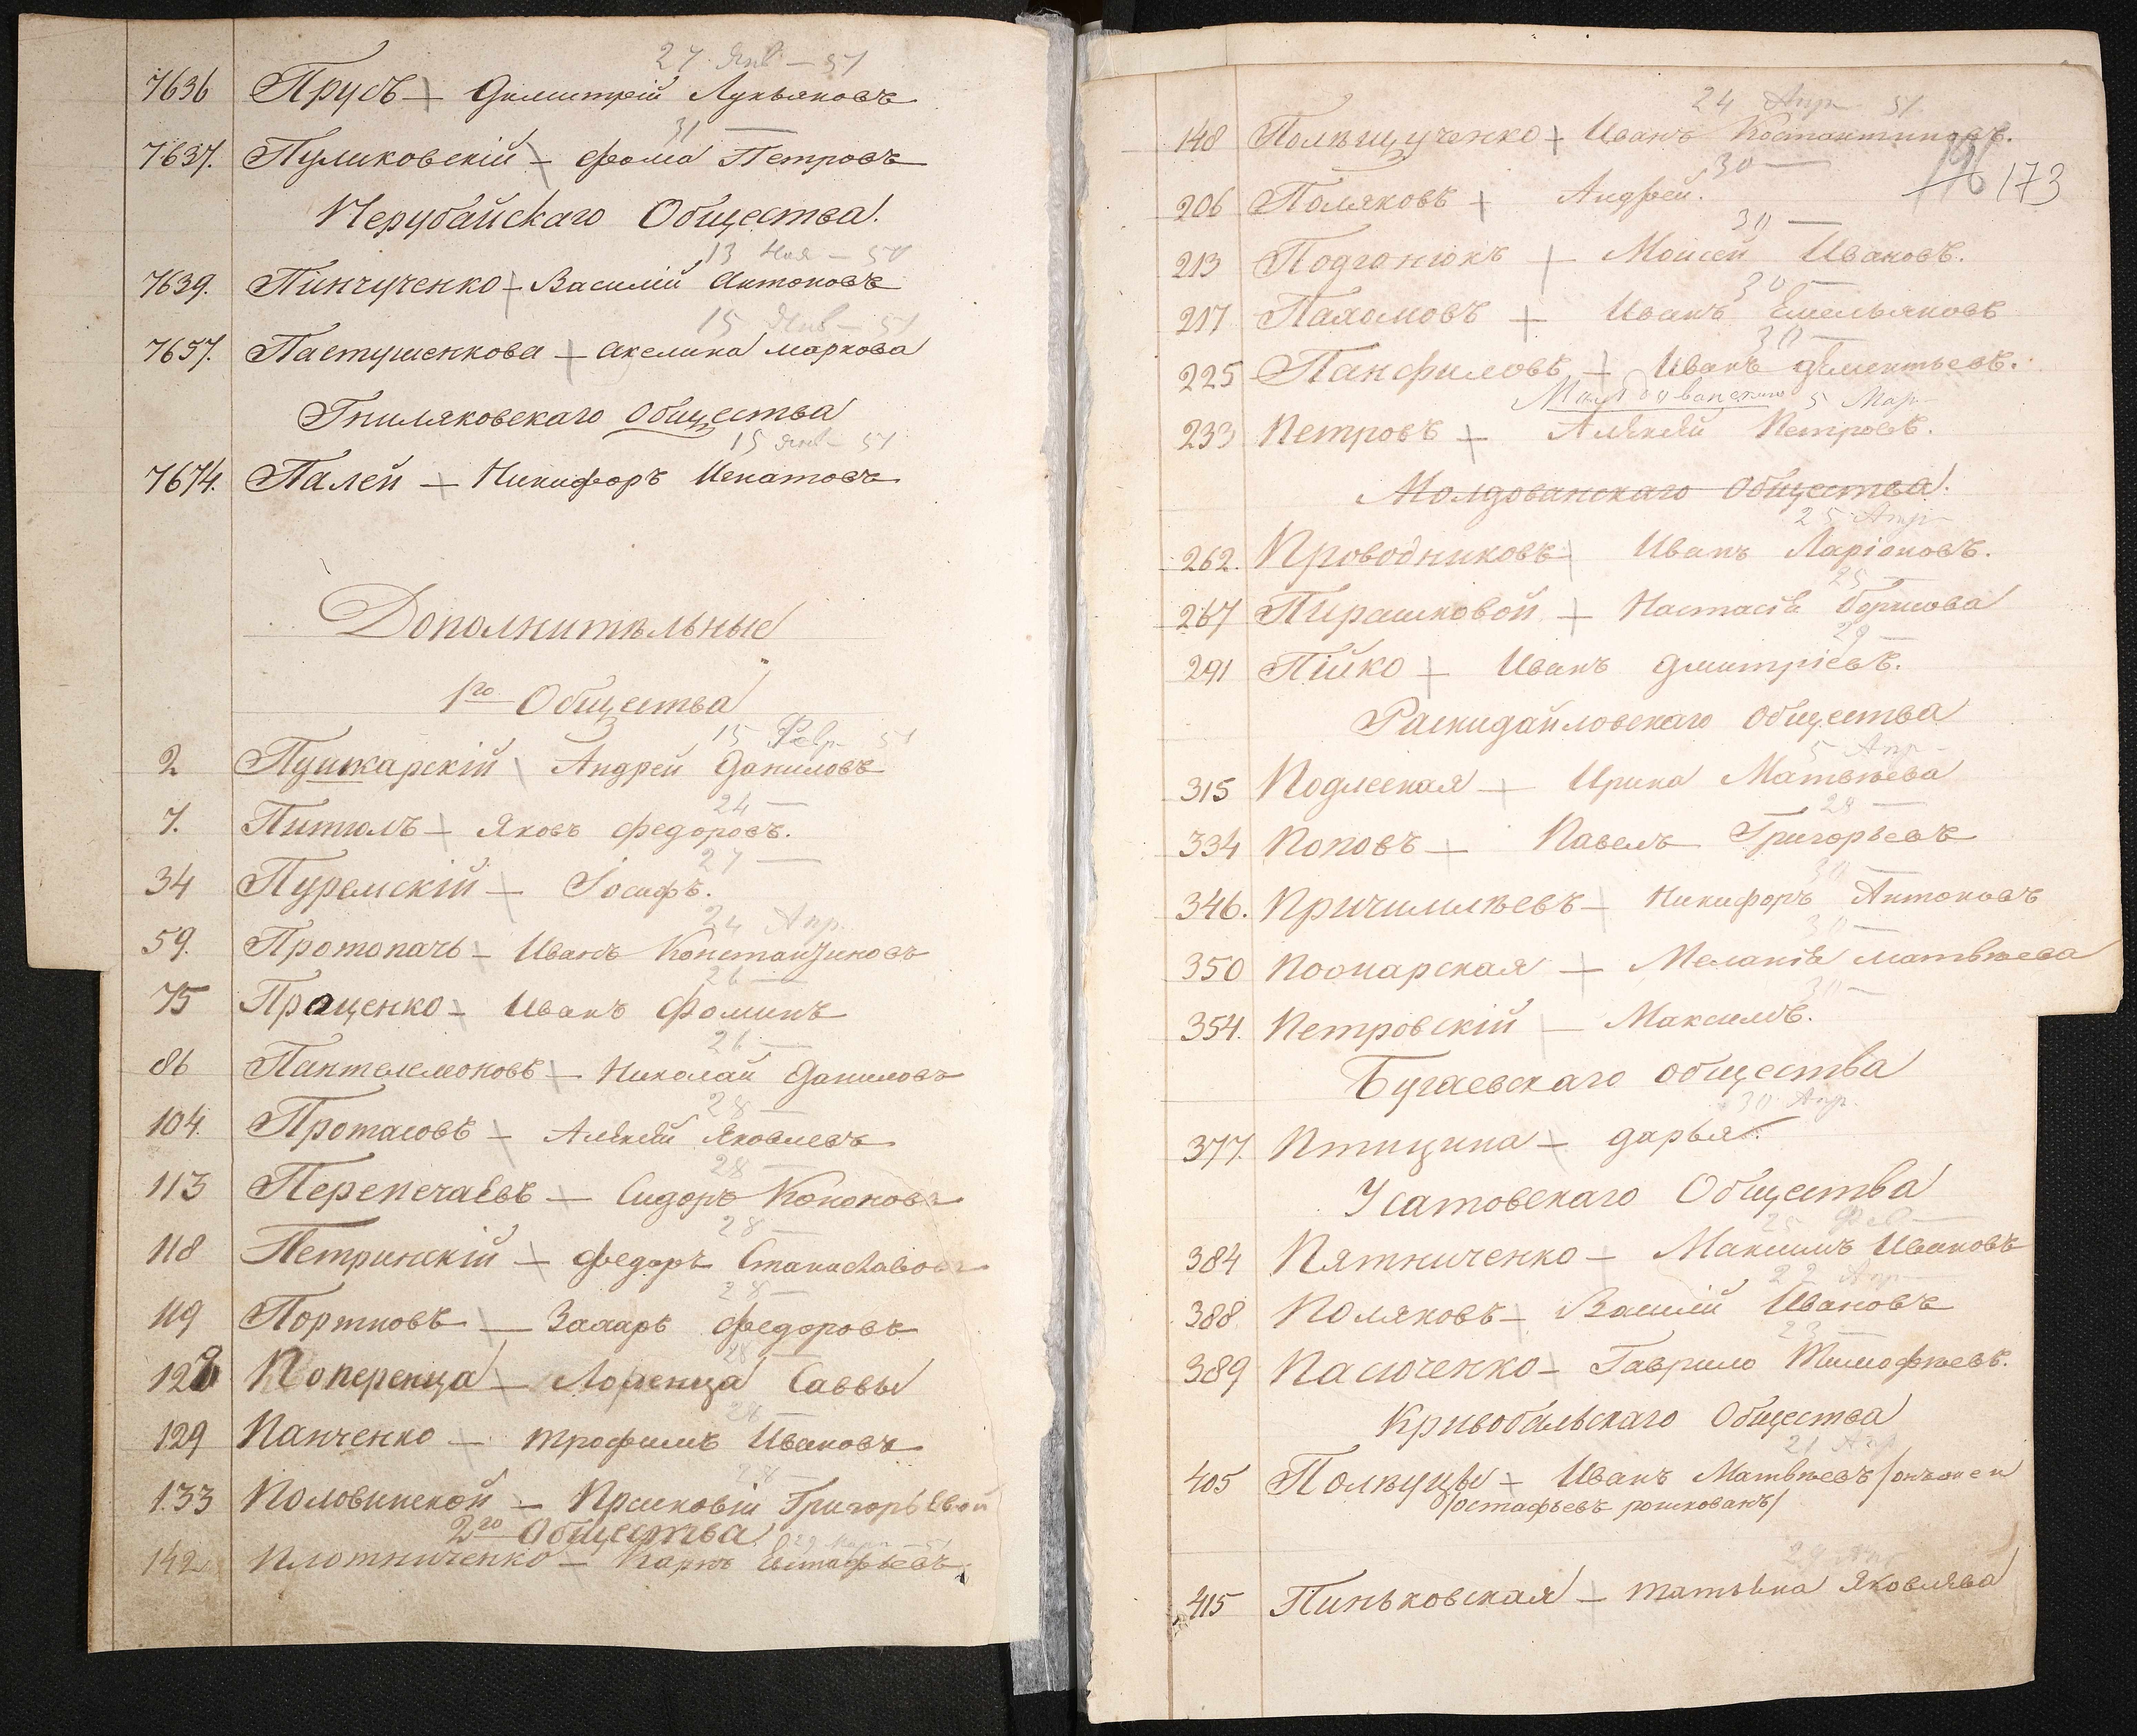 27 Янв — 51
7636 Прусъ — Димитрій Лукьяновъ
31 —
7637. Пуликовскій — Фома Петровъ
Нерубайскаго Общества.
13 Ноя — 50
7639. Пинчученко — Василій Антоновъ
15 Янв — 51
7657. Пастушенкова — Акелина Маркова
Гниляковскаго Общества
15 Янв — 51
7674. Палей — Никифоръ Игнатовъ
Дополнитѣльные
1го Общества
15 Февр 51
2 Пушкарскій Андрей Даниловъ
24 —
7. Питюлъ — Яковъ Федоровъ.
27 —
34 Пуремскій — Іосифъ.
24 Апр.
59. Протопачъ — Иванъ Константиновъ
26 —
75 Проценко — Иванъ Фоминъ
26 —
86 Пантелемоновъ — Николай Даниловъ
28 —
104. Протасовъ — Алексѣй Яковлевъ
28 —
113 Перепечаевъ — Сидоръ Кононовъ
28 —
118 Петринскій — Федоръ Станиславовъ
28 —
119 Портновъ — Захаръ Федоровъ
28 —
128 Поперенца — Лоренца Саввы
28 —
129 Панченко — Трофимъ Ивановъ
28 —
133 Половинской — Прасковіи Григорьевой
2го Общества
29 Марта — 51
142 Плотниченко — Карпъ Евстафьевъ.
24 Апр 51
148 Полѣщученко Иванъ Костантиновъ.
30 —
173
206 Поляковъ Андрей.
30 —
213 Подганюкъ Моисей Ивановъ.
30 —
217 Пахомовъ Иванъ Емельяновъ
30 —
225 Панфиловъ — Иванъ Дѣментьевъ.
Молдованскаго 5 Мар
233 Петровъ — Алексѣй Петровъ.
Молдованскаго Общества.
25 Апр
262. Проводниковъ Иванъ Ларіоновъ.
25 —
267 Пирашковой — Настасіи Борисова
29 —
291 Пійко — Иванъ Дмитріевъ.
Раскидайловскаго Общества
5 Апр —
315 Подлесная — Ирина Матвѣева
29 —
334 Поповъ — Павелъ Григорьевъ
30 —
346. Причимлѣевъ — Никифоръ Антоновъ
30 —
350 Поонарская — Меланія Матвѣева
30 —
354. Петровскій — Максимъ.
Бугаевскаго общества
30 Апр.
377. Птицина — Дарья.
Усатовскаго Общества
25 Фев —
384 Пятниченко — Максимъ Ивановъ
22 Апр
388 Поляковъ — Василій Ивановъ
23 —
389 Пасюченко — Гаврило Тимофѣевъ.
Кривобальскаго Общества
21 Апр
405 Полѣщцы — Иванъ Матвѣевъ /онъже и
Остафьевъ рошкованъ/
29 Апр
415 Пиньковская — Татьяна Яковлява